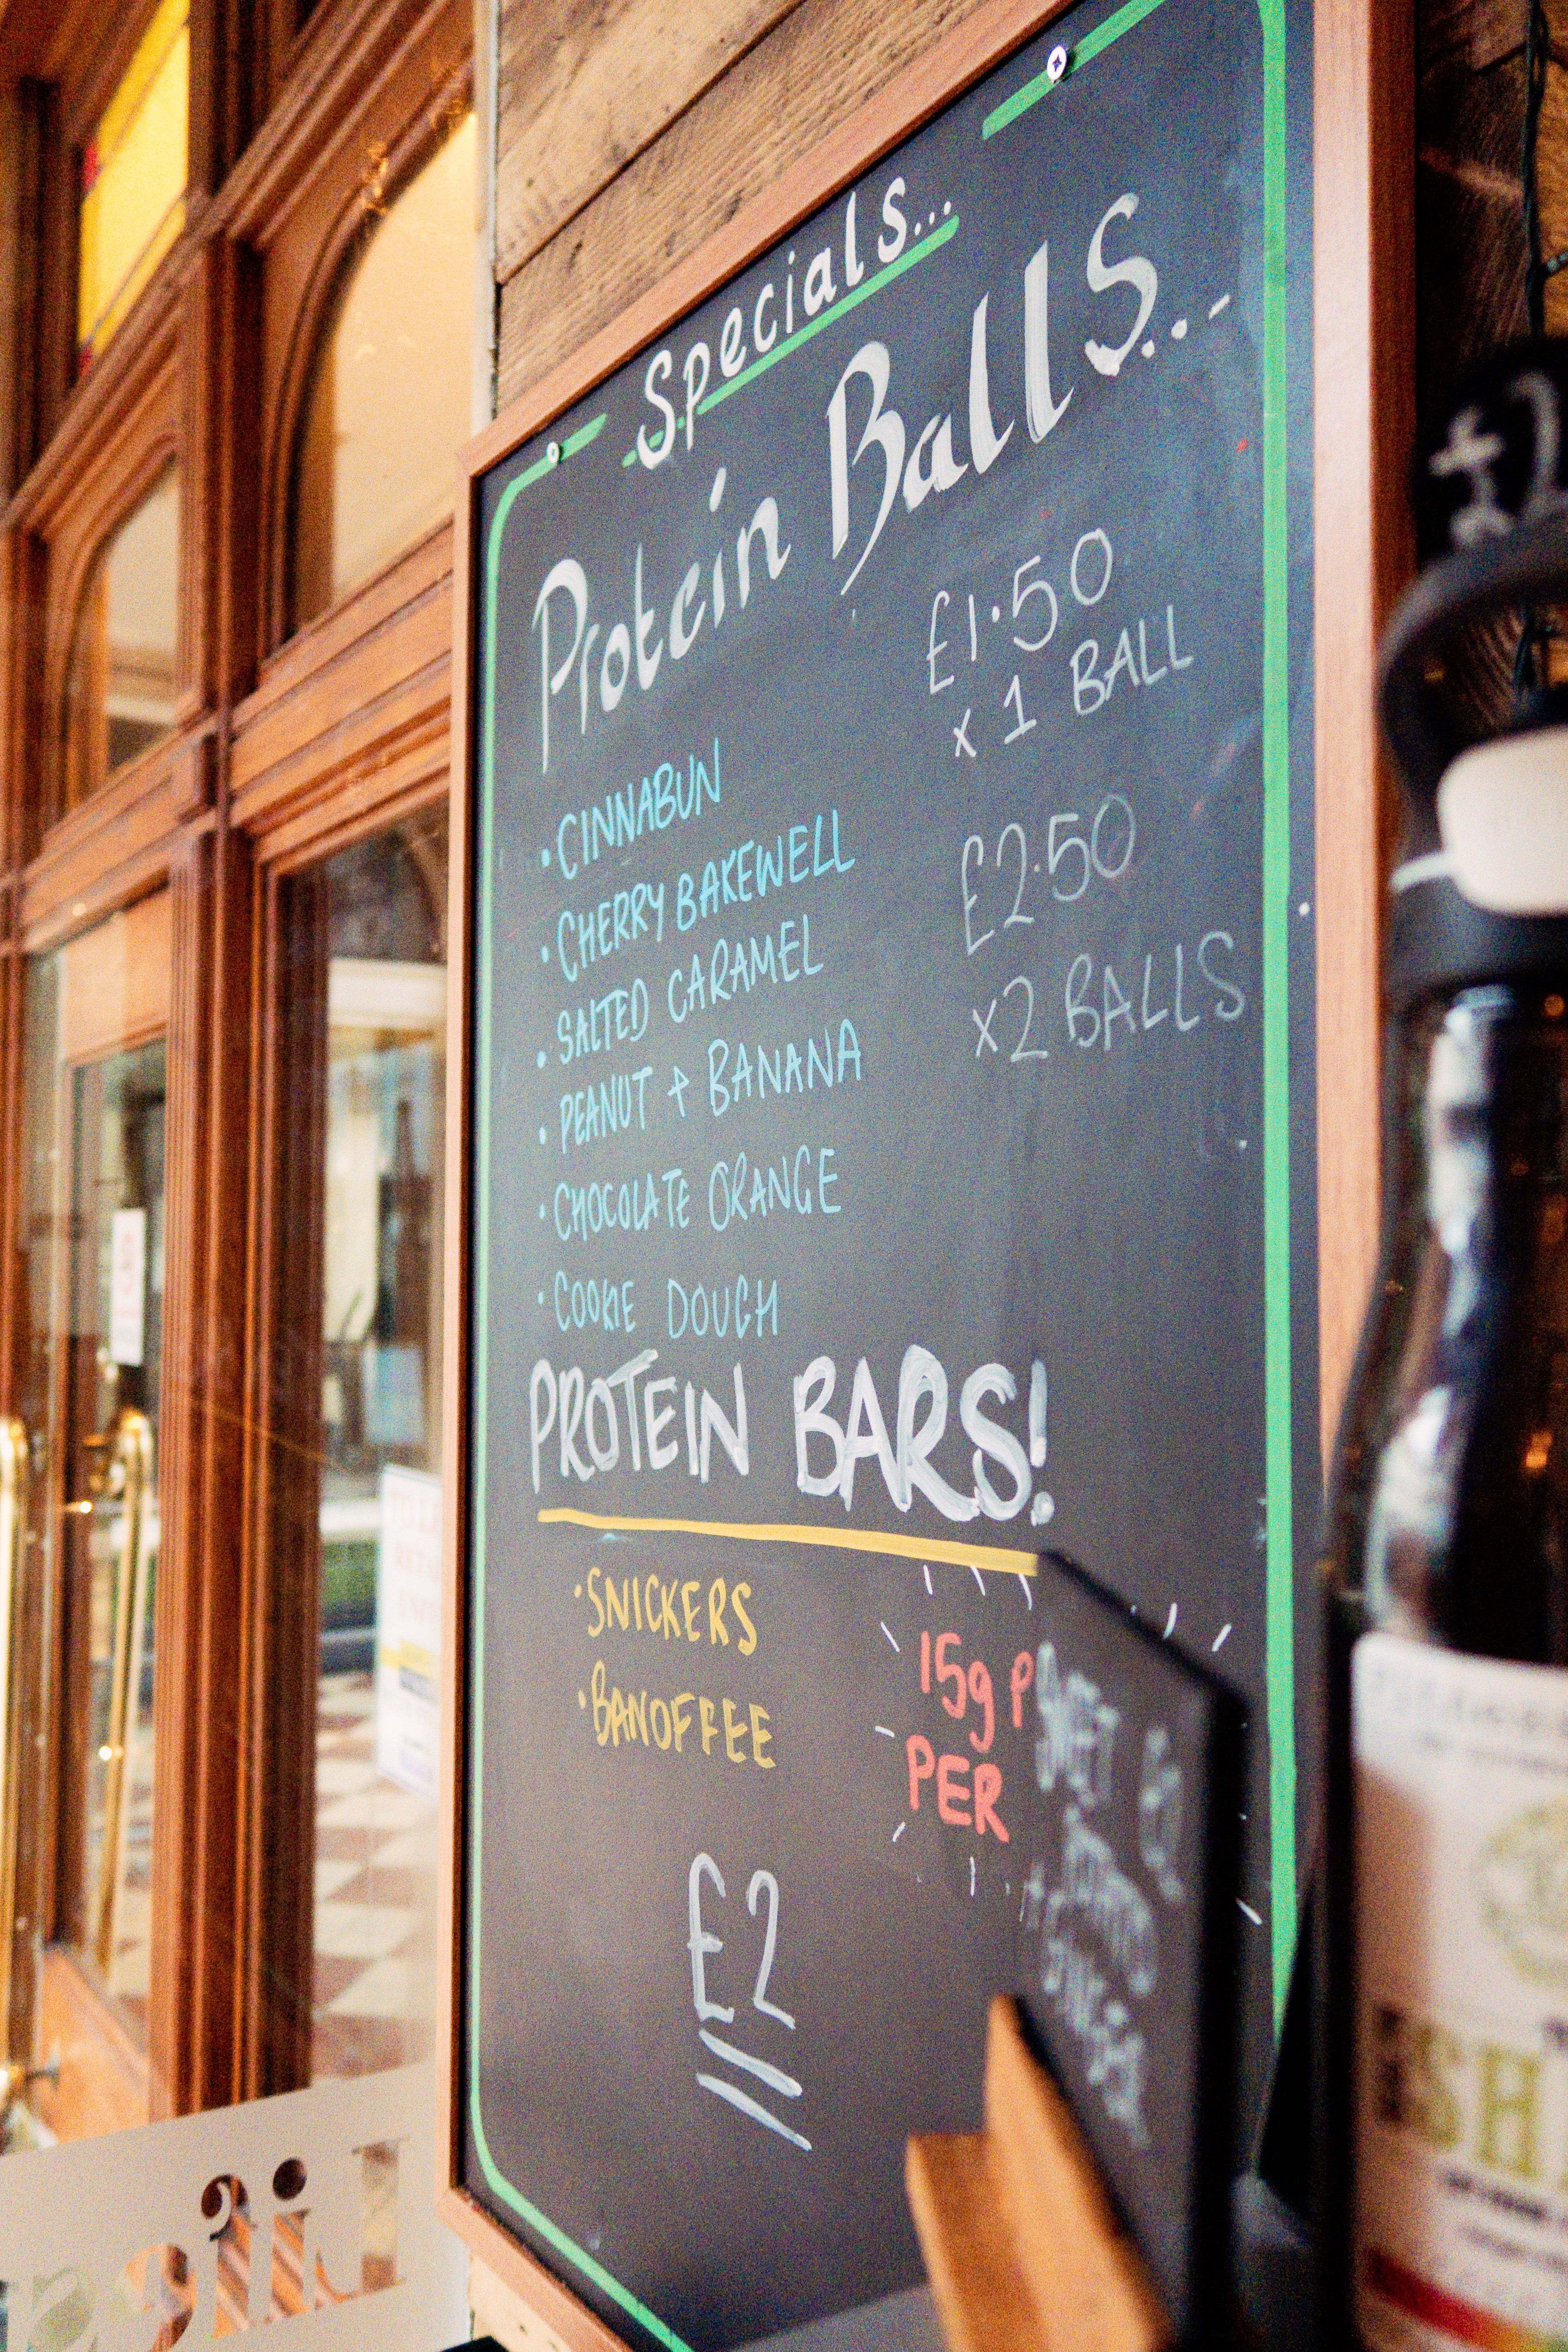 Specials...
Protein Balls...
£1.50
x 1 BALL
• CINNABUN
• CHERRY BAKEWELL
• SALTED CARAMEL
• PEANUT + BANANA
• CHOCOLATE ORANGE
• COOKIE DOUGH
£2.50
x2 BALLS
PROTEIN BARS!
• SNICKERS
• BANOFFEE
15g P
PER
£2